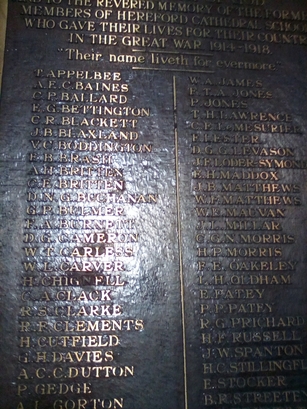 TO THE REVERED MEMORY OF THE FORMER
MEMBERS OF HEREFORD CATHEDRAL SCHOOL
WHO GAVE THEIR LIVES FOR THEIR COUNTRY
IN THE GREAT WAR. 1914-1918.
"Their name liveth for evermore"
T. APPELBEE
A.E.C. BAINES
C.P. BALLARD
E.G. BETTINGTON
C.R. BLACKETT
J.B. BLAXLAND
V.C. BODDINGTON
E.B. BRASH
BRITTEN
C.E. BRITTEN
D.N.G. BUCHANAN
G.P. BULMER
F.A. BURNETT
D.G. CAMERON
W.T. CARLESS
W.L. CARVER
H. CHIGNELL
A. CLACK
R.S. CLARKE
R.F. CLEMENTS
H. CUTFIELD
G.H. DAVIES
A.C.C. DUTTON
P. GEDGE
A.L. GORTON
W.A. JAMES
E.T.A. JONES
P. JONES
T.H. LAWRENCE
LE MESURIER
LESTER
MAVESON
LODER-SYMONDS
E.H. MADDOX
J.B. MATTHEWS
W.F. MATTHEWS
McEVAN
J.L. MILLAR
C.G.N. MORRIS
H.P. MORRIS
F.E. OAKELEY
L.H. OLDHAM
E. PATEY
P.P. PATEY
R.G. PRICHARD
H.F. RUSSELL
J.W. SPANTON
H.C. STILLINGFLEET
E. STOCKER
B.R. STREETEN